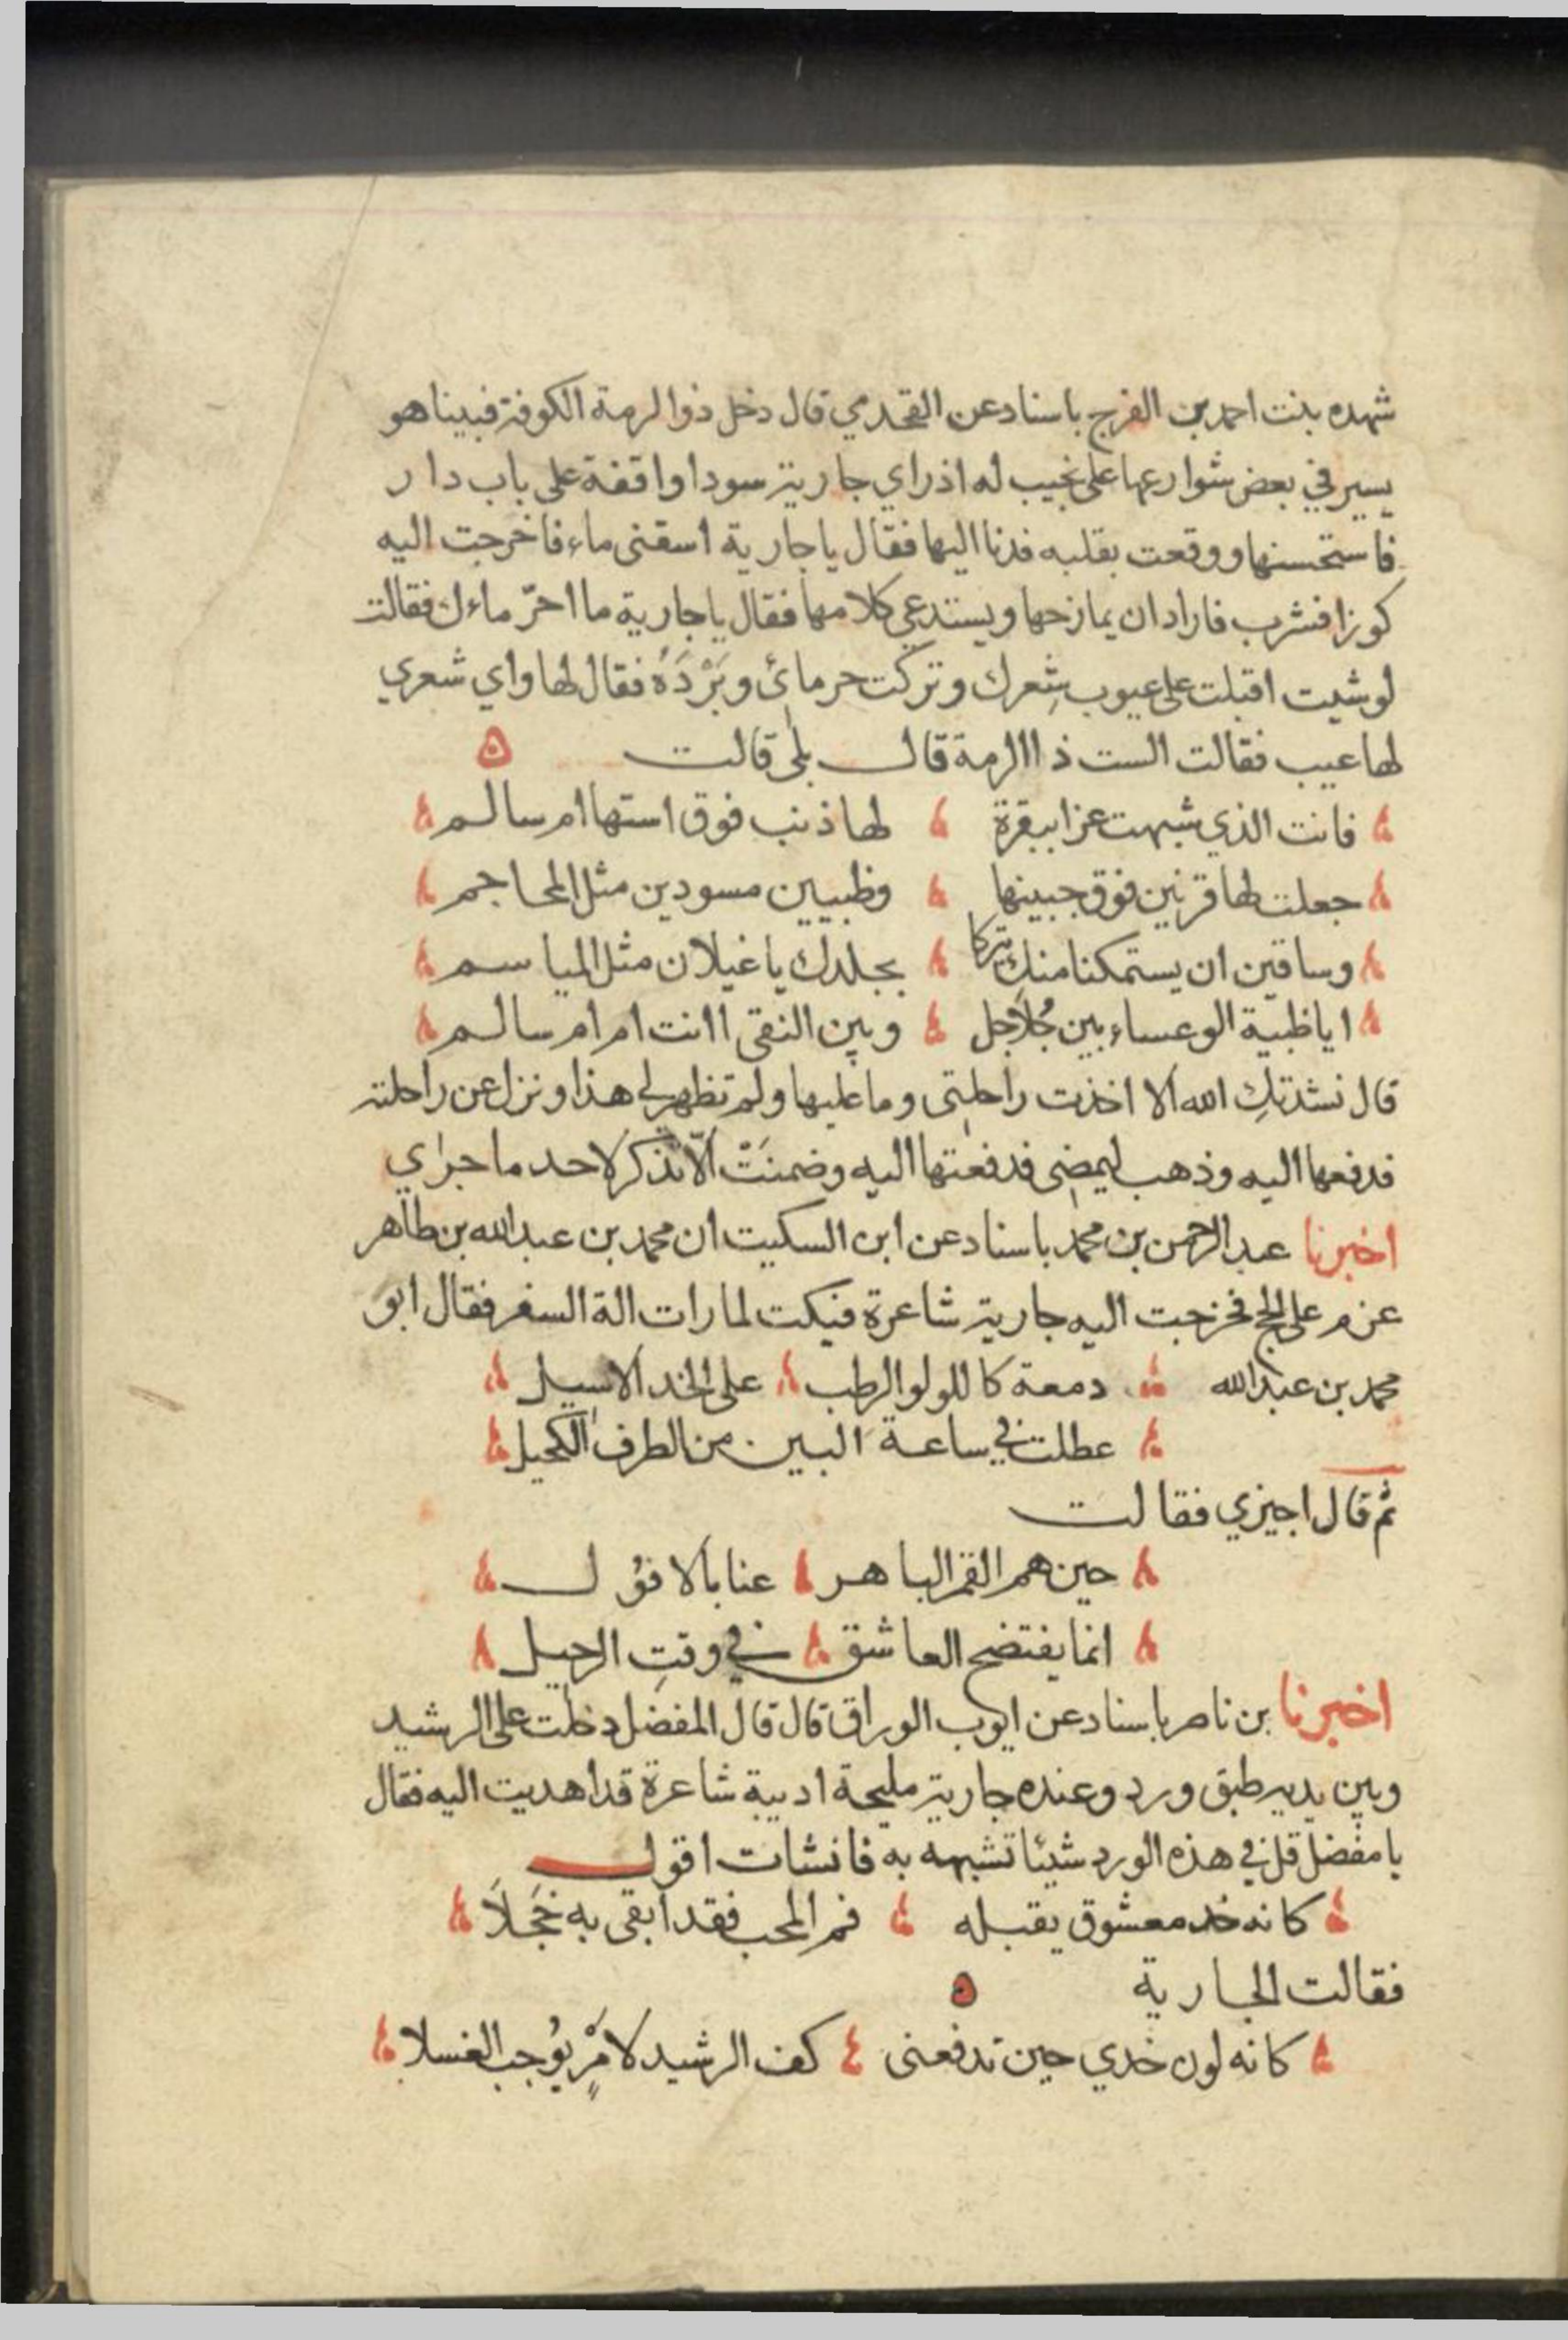 شهده بنت احمد بن الفرج باسناد عن القحدمي قال دخل ذوالرمة الكوفة فبينا هو
يسير في بعض شوارعها على نجيب له اذ راي جارية سودا واقفة على باب دار
فاستحسنها ووقعت بقلبه فدنا اليها فقال يا جارية اسقني ماء فاخرجت اليه
كوزا فشرب فاراد ان يمازحها ويستدعي كلامها فقال يا جارية ما احرّ ماءك فقالت
لو شيت اقبلت على عيوب شِعرك وتركت حر مائ وبَرْدَهُ فقال لها واي شعري
لها عيب فقالت الست ذا الرمة قال بلى قالت ه
فانت الذي شبهت عنزا ببقرة لها ذنب فوق استها ام سالم
جعلت لها قرنين فوق جبينها وظبيين مسودين مثل المحاجم
وساقين ان يستمكنا منكِ يتركا بجلدك يا غيلان مثل المياسم
ايا ظبية الوعساء بين جُلاجل وبين النقى اانت ام ام سالم
قال نشدتكِ الله الا اخذت راحلتي وما عليها ولم تظهر لي هذا ونزل عن راحلته
فدفعها اليه وذهب ليمضي فدفعتها اليه وضمنَتْ الّا تذكر لاحد ما جراي
اخبرنا عبد الرحمن بن محمد باسناد عن ابن السكيت ان محمد بن عبد الله بن طاهر
عزم على الحج فخرجت اليه جارية شاعرة فبكت لما رات الة السفر فقال ابو
محمد بن عبد الله دمعة كاللولو الرطب على الخد الاسيل
عطلت في ساعة البين من الطرف الكحيل
ثم قال اجيزي فقالت
حين هم القمر الباهر عنا بالافول
انما يفتضح العاشق في وقتِ الرحيل
اخبرنا بن ناصر باسناد عن ايوب الوراق قال قال المفضل دخلت على الرشيد
وبين يديه طبق ورد وعنده جارية مليحة اديبة شاعرة قد اهديت اليه فقال
يا مفضل قل في هذه الورد شيئا تشبهه به فانشات اقول
كانه خد معشوق يقبله فم المحب فقد ابقى به خَجَلاً
فقالت الجارية ه
كانه لون خدي حين تدفعنى كف الرشيد لامرٍ يُوجب الغسلا